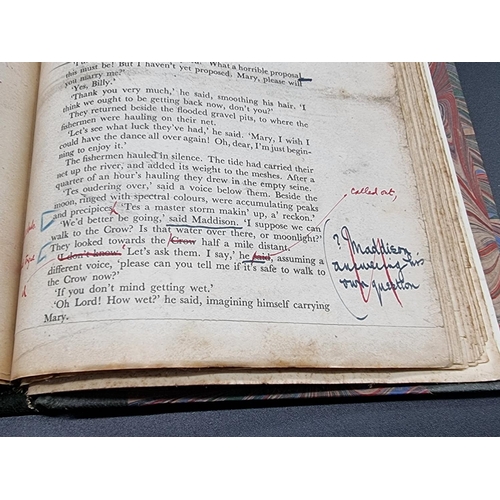 What a horrible proposal
this must be! But I haven't yet proposed. Mary, please will
you marry me?'
'Yes, Billy.'
'Thank you very much,' he said, smoothing his hair. 'I
think we ought to be getting back now, don't you?'
They returned beside the flooded gravel pits, to where the
fishermen were hauling on their net.
'Let's see what luck they've had,' he said. 'Mary, I wish I
could have the dance all over again! Oh, dear, I'm just begin-
ning to enjoy it.'
The fishermen hauled in silence. The tide had carried their
net up the river, and added its weight to the meshes. After a
quarter of an hour's hauling they drew in the empty seine.
'Tes oudering over,' said a voice below them. Beside the
moon, ringed with spectral colours, were accumulating peaks
and precipices. 'Tes a master storm makin' up, a' reckon.'
called out,
'We'd better be going,' said Maddison. 'I suppose we can
walk to the Crow? Is that water over there, or moonlight?'
They looked towards the Crow half a mile distant.
'I don't know.' 'Let's ask them. I say,' he said, assuming a
different voice, 'please can you tell me if it's safe to walk to
the Crow now?'
'If you don't mind getting wet.'
'Oh Lord! How wet?' he said, imagining himself carrying
Mary.
? Maddison
answering his
own question